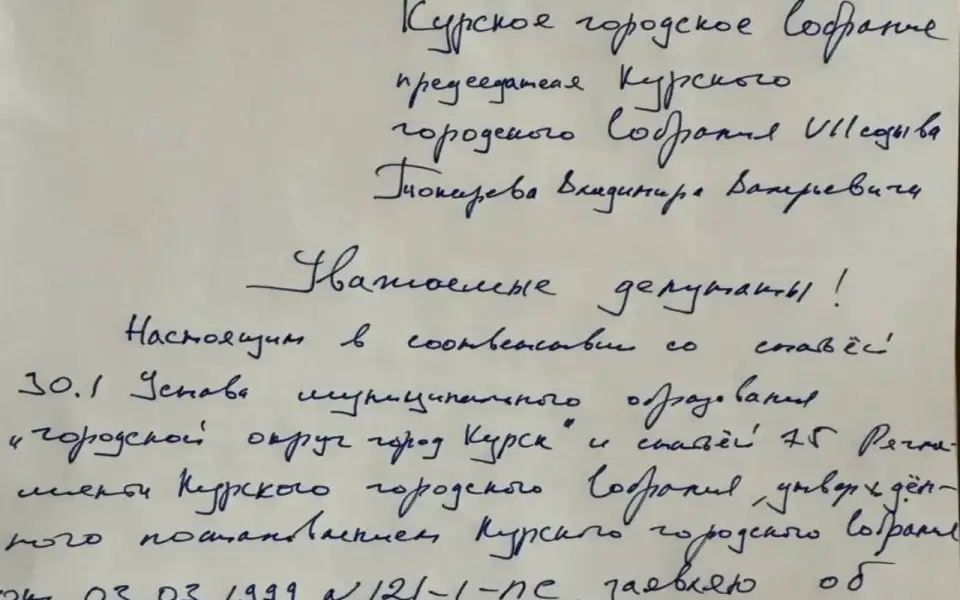 Курское городское Собрание
председателя Курского
городского Собрания VII созыва
Токарева Владимира Валерьевича
Уважаемые депутаты!
Настоящим в соответствии со статьёй
30.1 Устава муниципального образования
"городской округ город Курск" и статьёй 75 Регла-
мента Курского городского Собрания, утверждён-
ного постановлением Курского городского Собрания
от 03.03.1999 N121-1-ПС, заявляю об